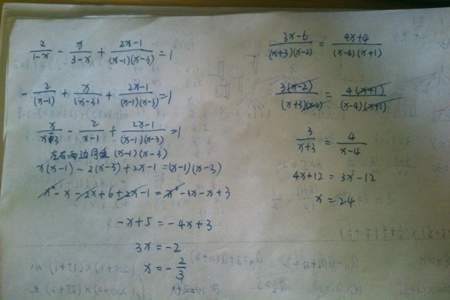 2/(1-x) - x/(3-x) + (2x-1)/((x-1)(x-3)) = 1
-2/(x-1) + x/(x-3) + (2x-1)/((x-1)(x-3)) = 1
x/(x-3) - 2/(x-1) + (2x-1)/((x-1)(x-3)) = 1
左右两边同乘 (x-1)(x-3)
x(x-1)-2(x-3)+2x-1=(x-1)(x-3)
x²-x-2x+6+2x-1=x²-3x-x+3
-x+5=-4x+3
3x=-2
x=-2/3
(3x-6)/((x+3)(x-2)) = (4x+4)/((x-4)(x+1))
3(x-2)/((x+3)(x-2)) = 4(x+1)/((x-4)(x+1))
3/(x+3) = 4/(x-4)
4x+12=3x-12
x=24